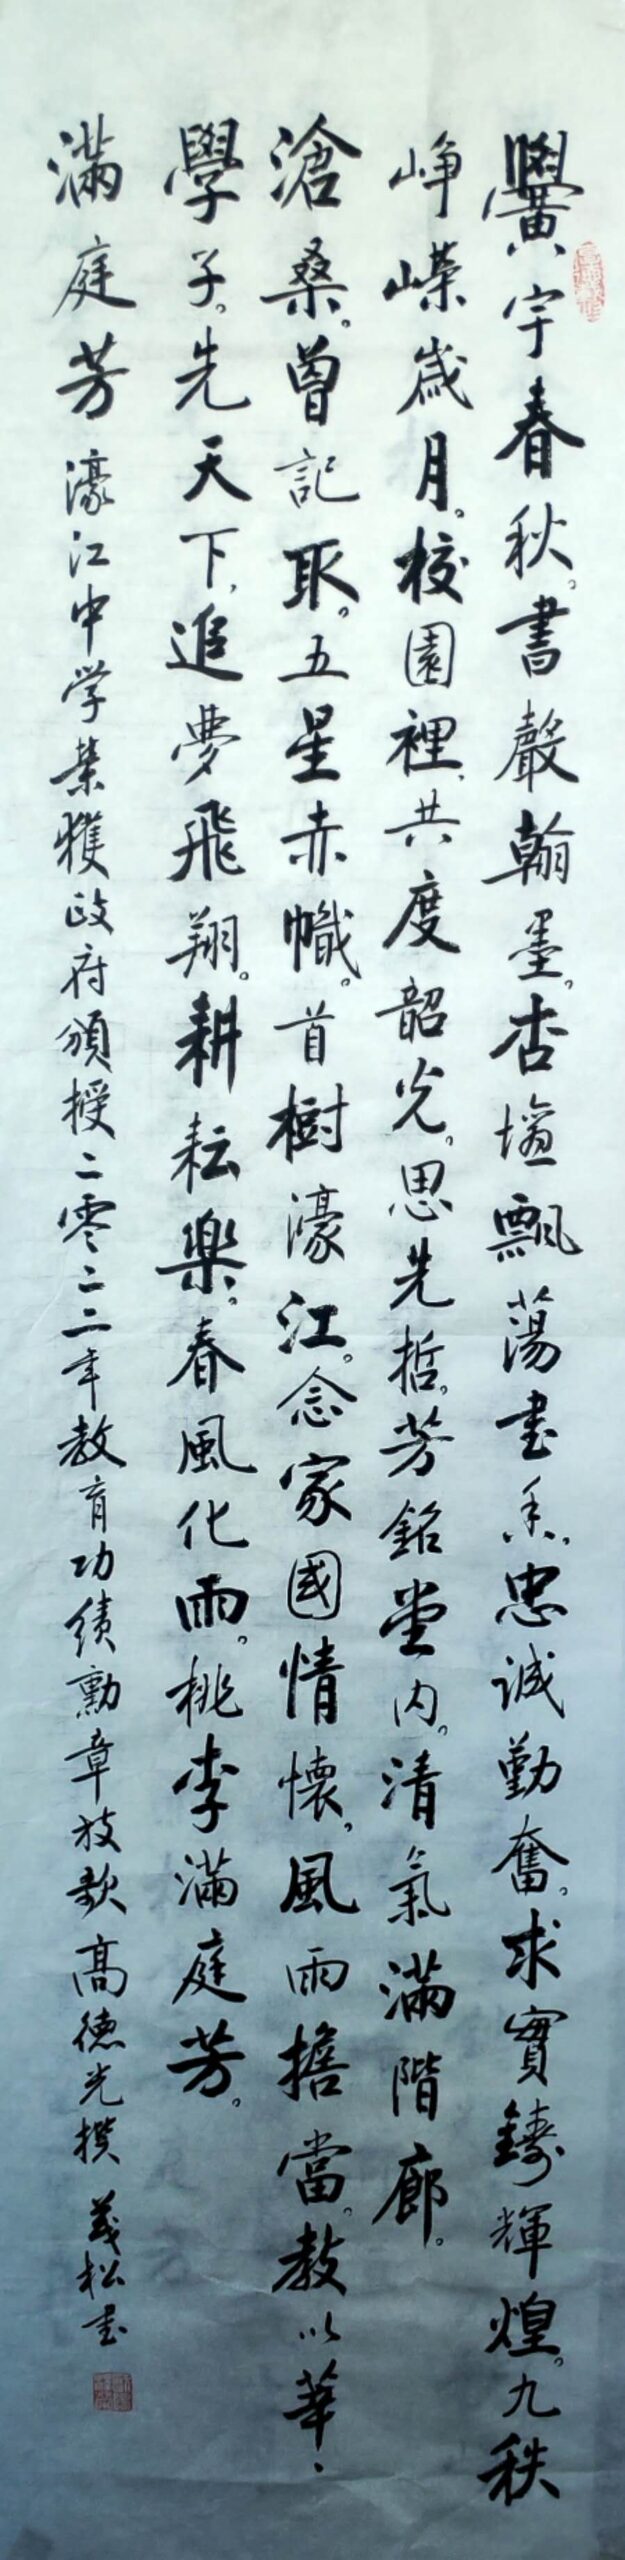 黌宇春秋。書聲翰墨。杏壇飄蕩書香。忠誠勤奮。求實鑄輝煌。九秩
崢嶸歲月。校園裡、共度韶光。思先哲。芳銘堂內。清氣滿階廊。
滄桑。曾記取。五星赤幟。首樹濠江。念家國情懷，風雨擔當。教以莘、
學子。先天下，追夢飛翔。耕耘樂。春風化雨。桃李滿庭芳。
滿庭芳 濠江中学荣獲政府頒授二零二二年教育功績勳章放歌 高德光撰 義松书